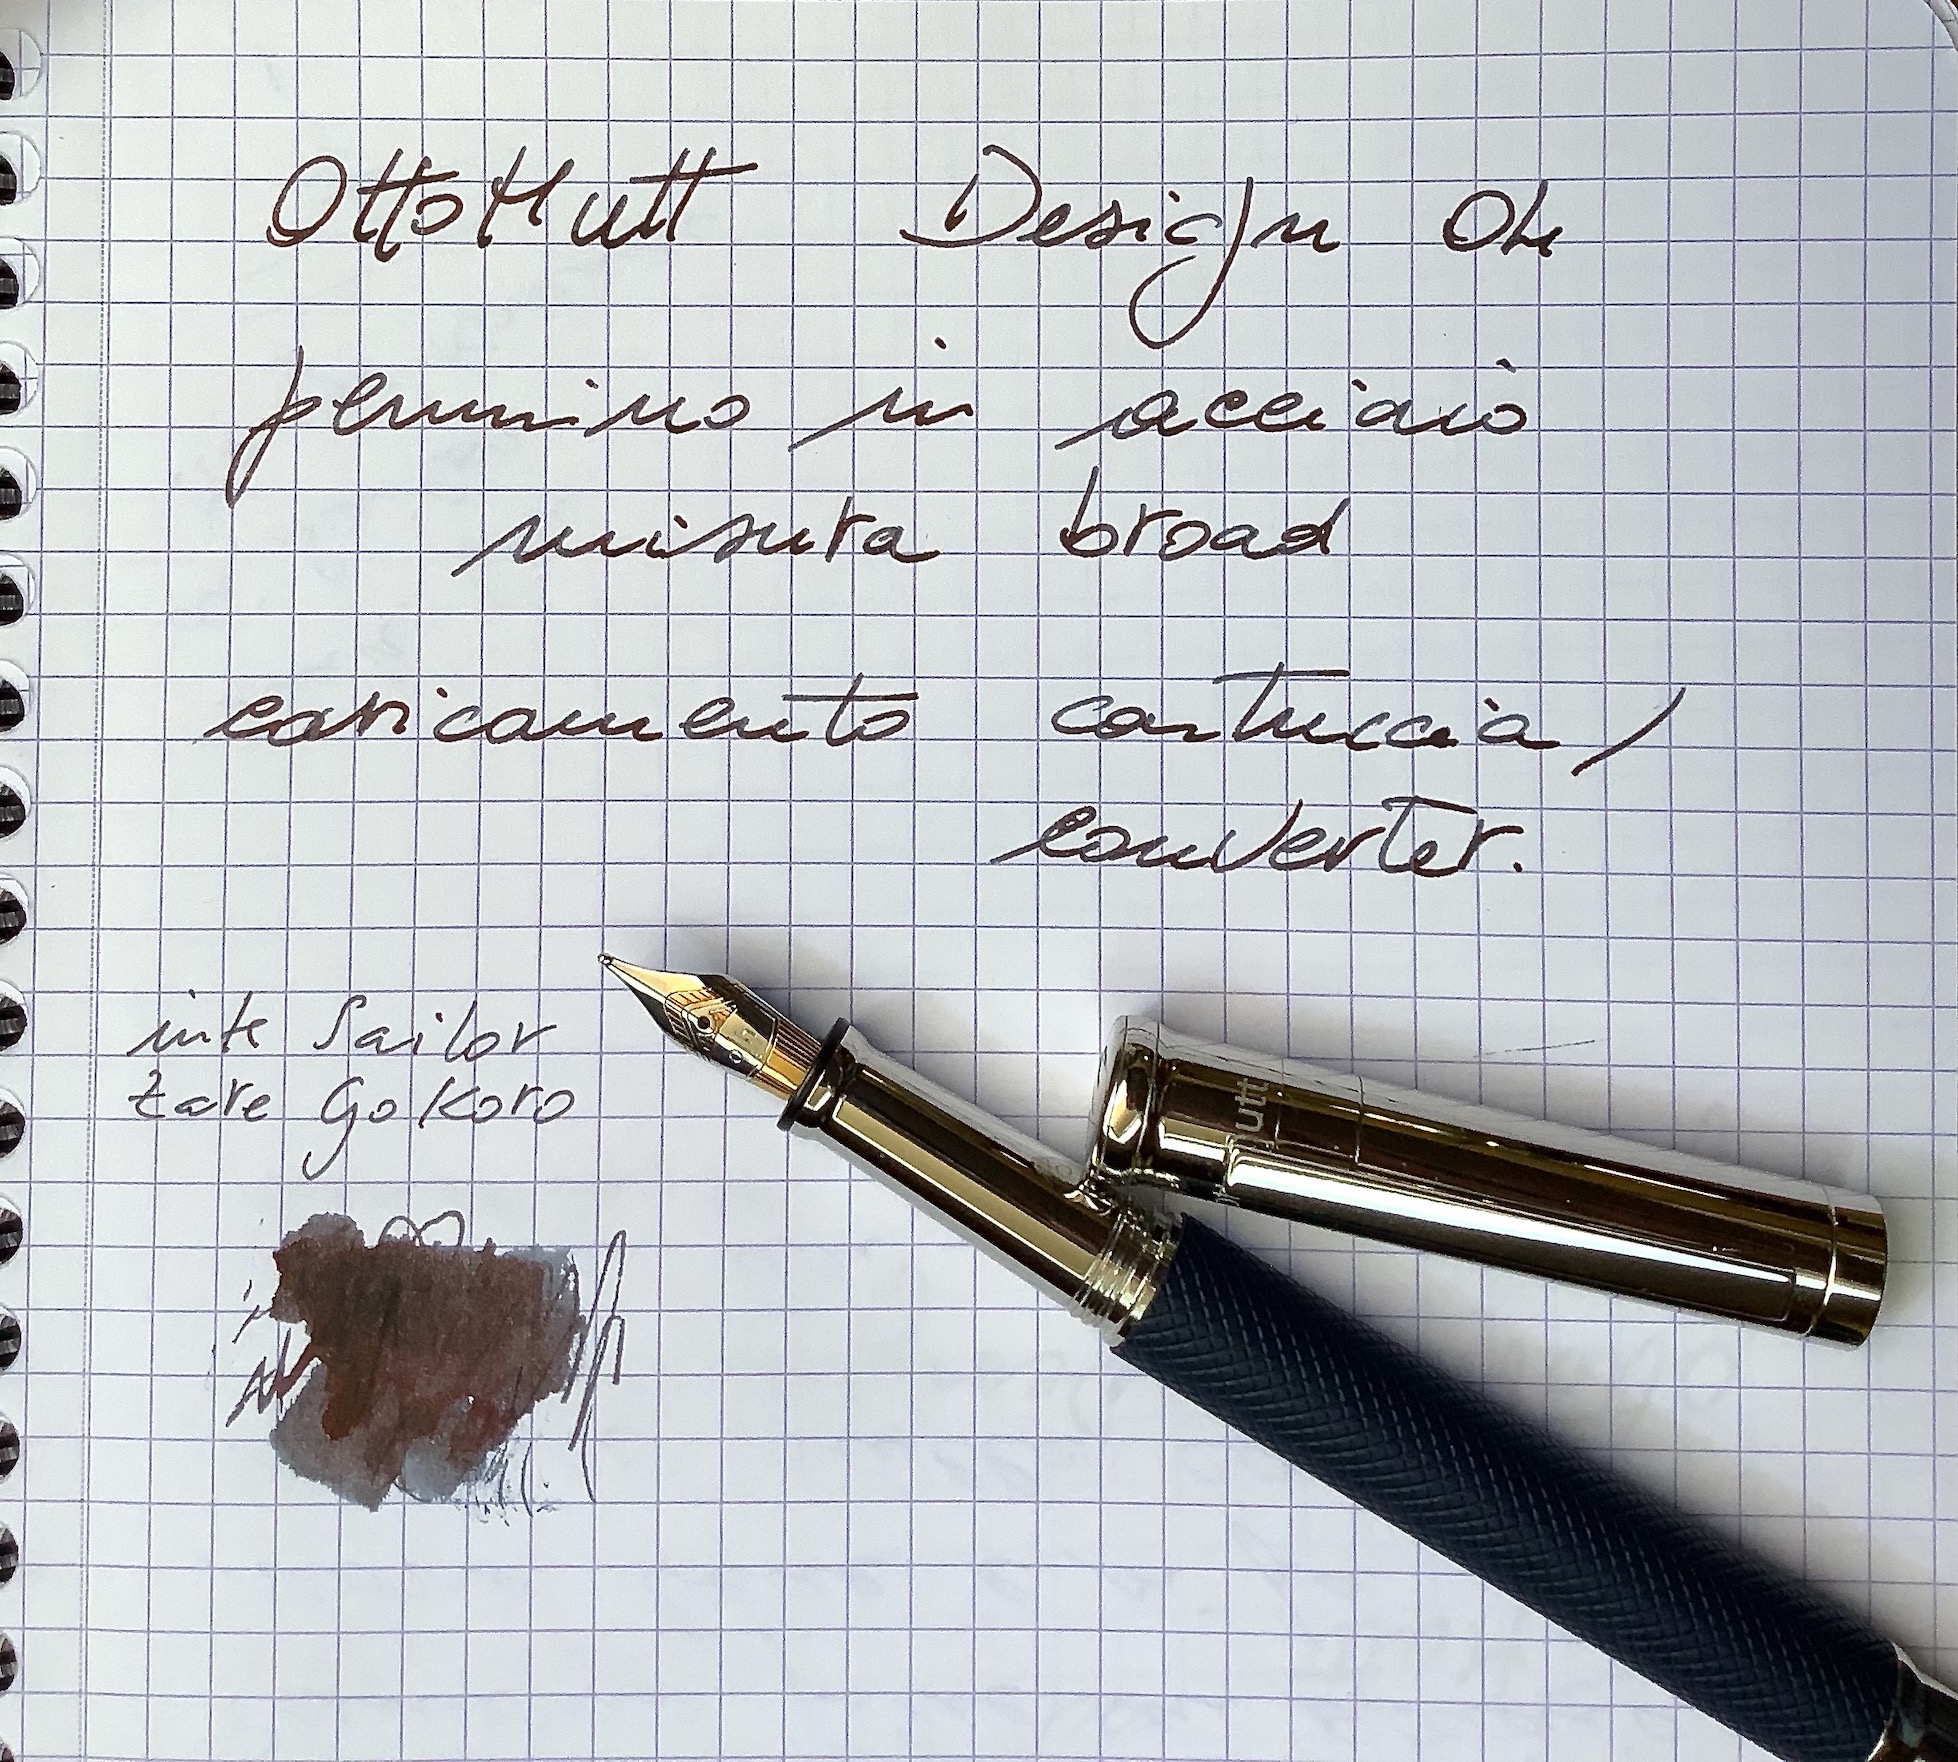 OttoHutt Design 04
pennino in acciaio
misura broad
caricamento cartuccia/
converter.
ink Sailor
zare Gokoro
utt